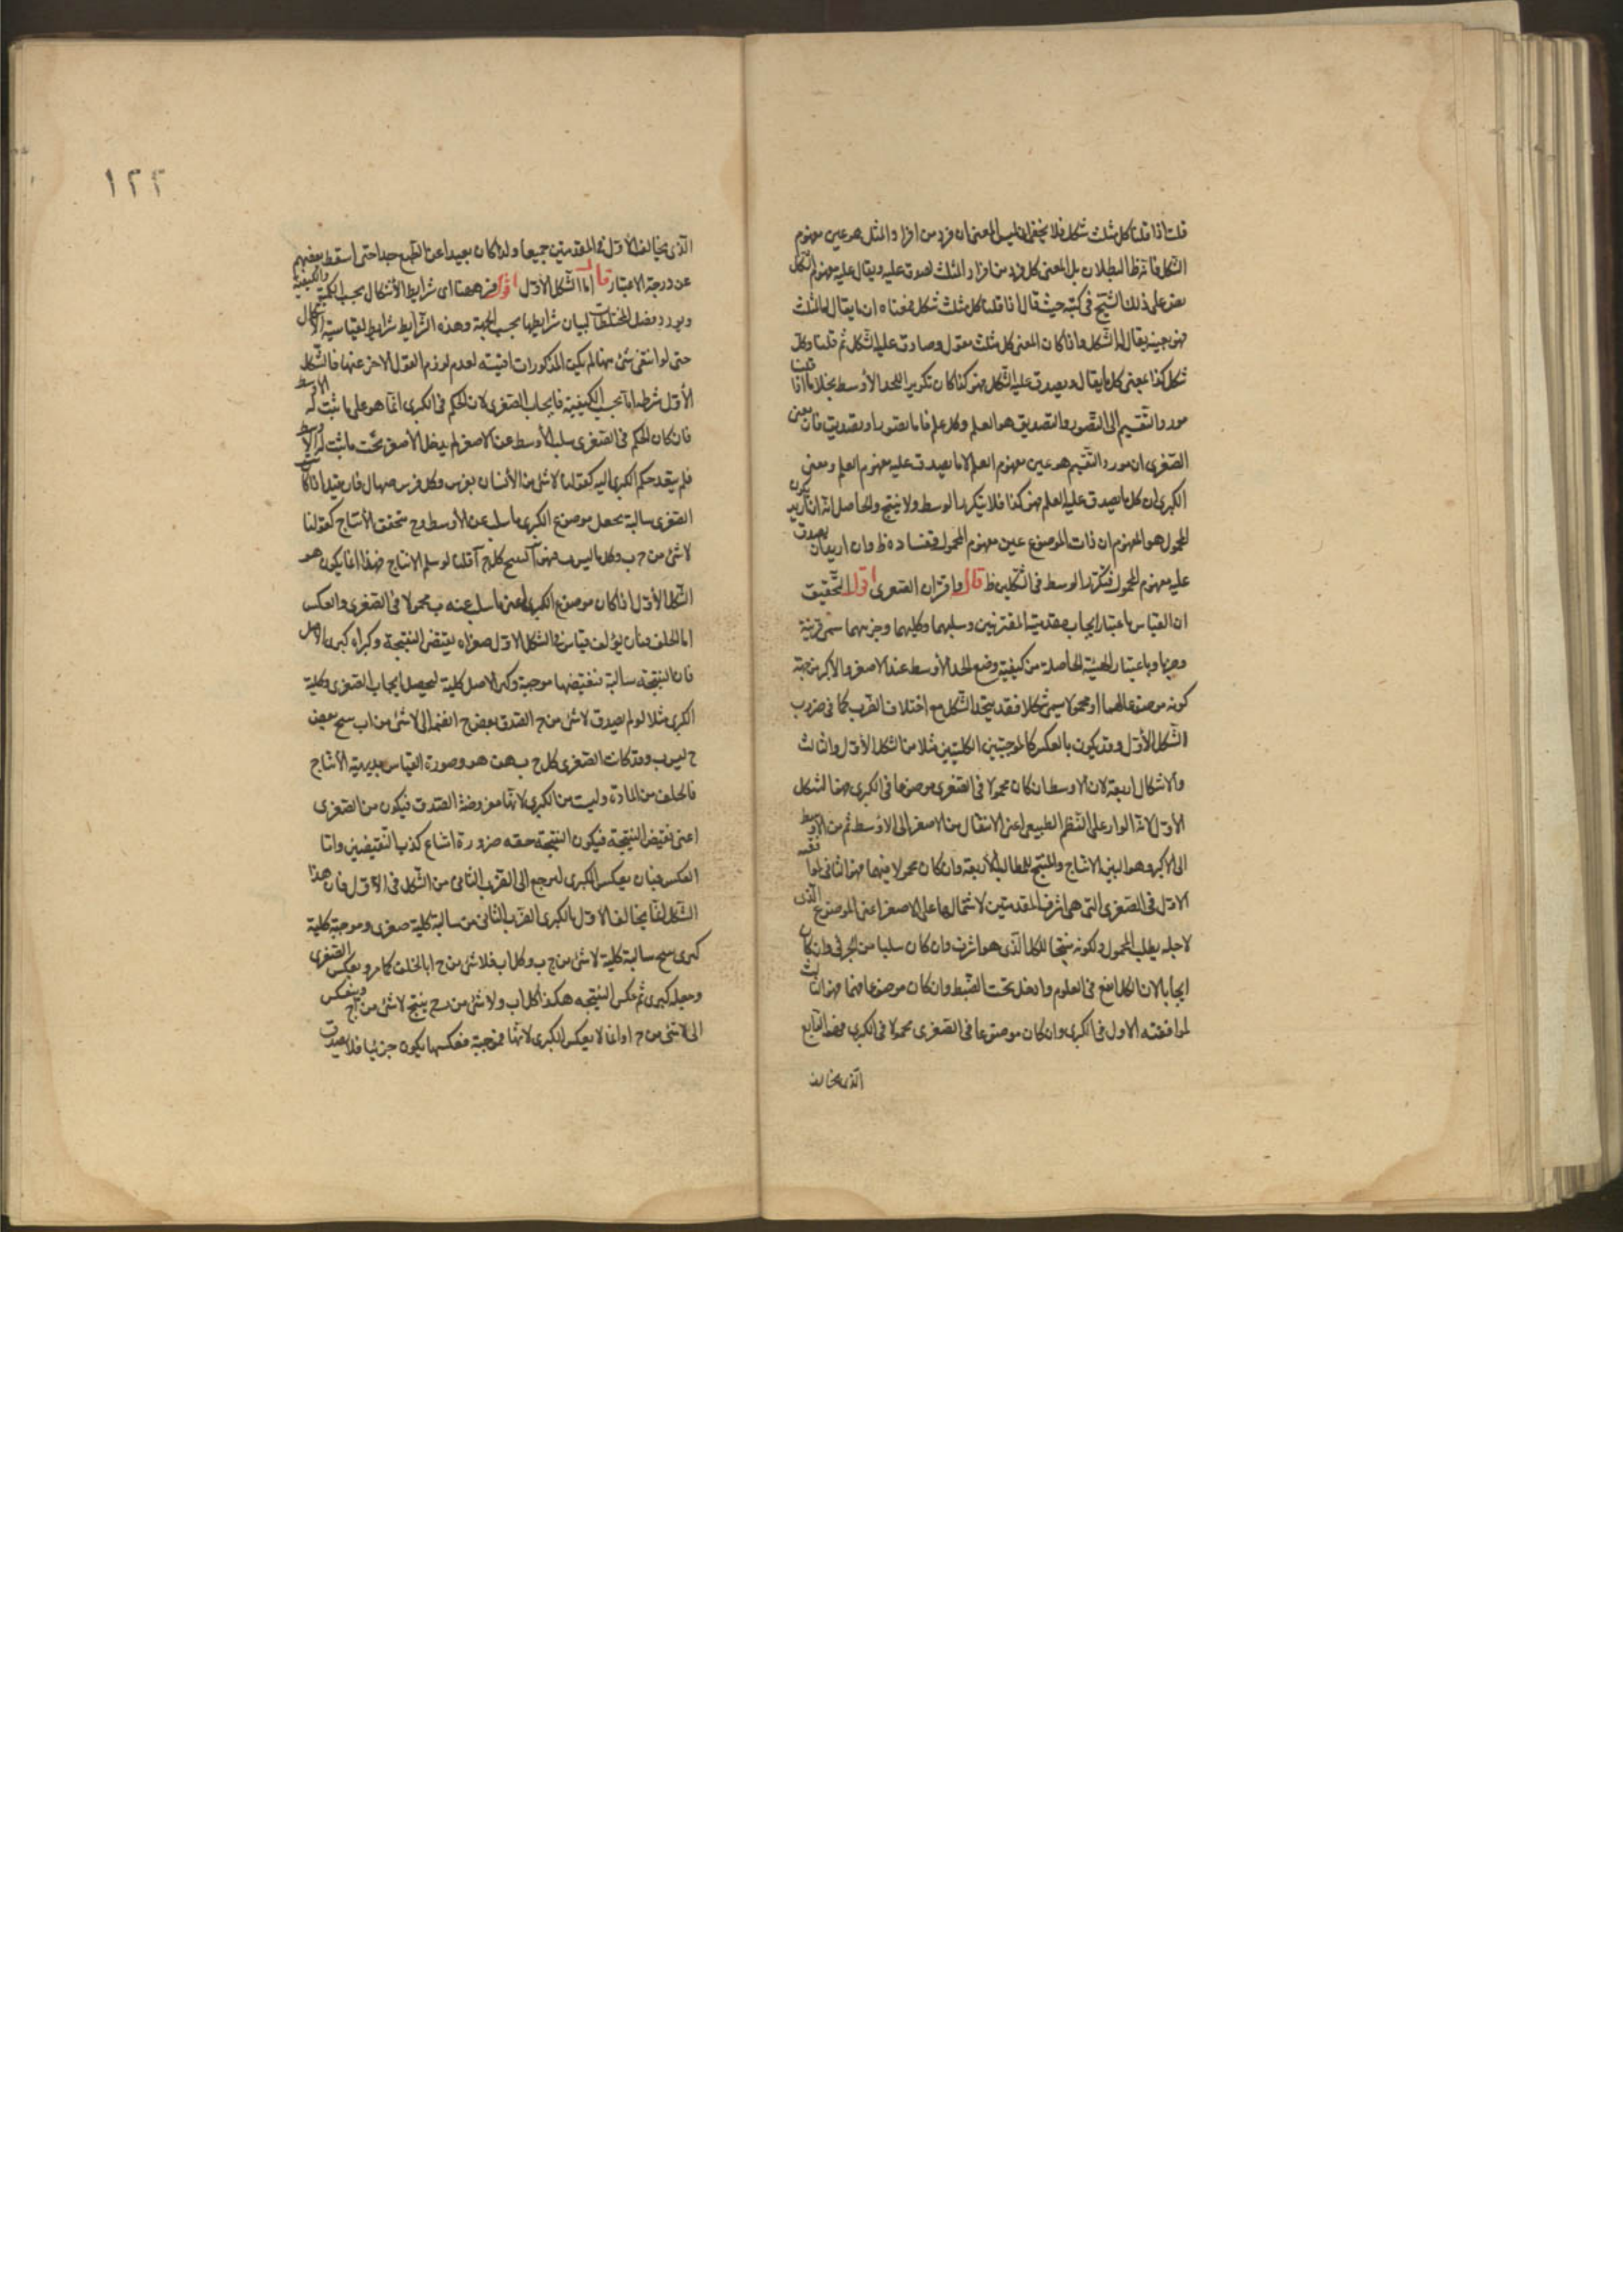 قلت اذا قلنا كل مثلث شكل فلا يخفى انه ليس المعنى ان فرد من افراد المثلث هو عين مفهوم
الشكل فانه ظ البطلان بل المعنى كل فرد من افراد المثلث يصدق عليه ويقال عليه مفهوم الشكل
نص على ذلك الشيخ فى كتبه حيث قال اذا قلنا كل مثلث شكل فمعناه ان ما يقال له المثلث
فهو بعينه يقال له الشكل واذا كان المعنى كل مثلث مقول وصادق عليه الشكل ثم قلنا وكل
شكل كذا بمعنى كل ما يقال ويصدق عليه الشكل فهو كذا كان تكرير الحد الأوسط بخلاف ما اذا قلنا
مورد التقسيم الى التصور والتصديق هو العلم وكل علم فاما تصور او تصديق فان معنى
الصغرى ان مورد التقسيم هو عين مفهوم العلم لا ما يصدق عليه مفهوم العلم ومعنى
الكبرى ان كل ما يصدق عليه العلم فهو كذا فلا يتكرر الوسط ولا ينتج والحاصل انه ان اريد بكون
المحمول هو المفهوم ان ذات الموضوع عين مفهوم المحمول ففساده ظ وان اريد ان يصدق
عليه مفهوم المحمول فتكرر الوسط فى الشكلين ظ قال واقتران الصغرى اقول التحقيق
ان القياس باعتبار ايجاب مقدمتيه المقترنتين وسلبهما وكليتهما وجزئيتهما سمى قرينة
وضربا وباعتبار الهيئة الحاصلة من كيفية وضع الحد الأوسط عند الاصغر والاكبر من جهة
كونه موضوعا لهما او محمولا يسمى شكلا فقد يتحد الشكل مع اختلاف الضرب كما فى ضروب
الشكل الأول وقد يكون بالعكس كالموجبتين الكليتين مثلا من الشكل الأول والثالث
والاشكال اربعة لان الاوسط ان كان محمولا فى الصغرى موضوعا فى الكبرى فهو الشكل
الأول لانه الوارد على النظم الطبيعى اعنى الانتقال من الاصغر الى الاوسط ثم من الاوسط
الى الاكبر وهو البين الانتاج والمنتج للمطالب الأربعة وان كان محمولا فيهما فهو الثانى لموافقته
الاول فى الصغرى التى هى اشرف المقدمتين لاشتمالها على الاصغر اعنى الموضوع الذى
لاجله يطلب المحمول ولكونه منتجا للكلى الذى هو اشرف وان كان سلبا من الجزئى وان كان
ايجابا لان الكلى انفع فى العلوم وادخل تحت الضبط وان كان موضوعا فيهما فهو الثالث
لموافقته الاول فى الكبرى وان كان موضوعا فى الصغرى محمولا فى الكبرى فهو الرابع
الذى يخالف
١٢٢
الذى يخالف الأول فى المقدمتين جميعا ولذا كان بعيدا عن الطبع جدا حتى اسقط بعضهم
عن درجة الاعتبار قال اما الشكل الأول اقول ههنا اى شرايط الأشكال بحسب الكمية والكيفية
ويورد فصل المختلطات لبيان شرايطها بحسب الجهة وهذه الشرايط شرايط لقياسية الاشكال
حتى لو انتفى شئ منها لم يكن المذكورات اقيسة لعدم لزوم القول الاخر عنها فالشكل
الأول شرطه اما بحسب الكيفية فايجاب الصغرى لان الحكم فى الكبرى انما هو على ما ثبت له الاوسط
فان كان الحكم فى الصغرى سلب الأوسط عن الاصغر لم يدخل الأصغر تحت ما ثبت له الاوسط
فلم يتعد حكم الكبرى اليه كقولنا لا شئ من الأنسان بفرس وكل فرس صهال فان قيل اذا كانت
الصغرى سالبة بجعل موضوع الكبرى ما سلب عن الأوسط وح يتحقق الأنتاج كقولنا
لا شئ من ج ب وكل ما ليس ب فهو آ ينتج كل ج آ قلنا لو سلم الانتاج فهذا انما يكون هو
الشكل الأول اذا كان موضوع الكبرى اعنى ما سلب عنه ب محمولا فى الصغرى والعكس
اما الخلف فبان يؤلف قياس فى الشكل الاول صغراه نقيض النتيجة وكبراه كبرى الاصل
فان النتيجة سالبة فنقيضها موجبة وكبرى الاصل كلية ليحصل ايجاب الصغرى وكلية
الكبرى مثلا لو لم يصدق لا شئ من ج ا لصدق بعض ج ا نضمه الى لا شئ من اب ينتج بعض
ج ليس ب وقد كانت الصغرى كل ج ب هف هو وصورة القياس بديهية الأنتاج
فالخلف من المادة وليست من الكبرى لانها مفروضة الصدق فيكون من الصغرى
اعنى نقيض النتيجة فيكون النتيجة حقه ضرورة امتناع كذب النقيضين واما
العكس فبان يعكس الكبرى ليرجع الى الضرب الثانى من الشكل الأول فان هذا
الشكل انما يخالف الاول بالكبرى الضرب الثانى من سالبة كلية صغرى وموجبة كلية
كبرى ينتج سالبة كلية لا شئ من ج ب وكل اب فلا شئ من ج ا بالخلف كما مر وبعكس الصغرى
وجعله كبرى ثم عكس النتيجة هكذا كل اب ولا شئ من ب ج ينتج لا شئ من اج وينعكس
الى لا شئ من ج ا وانما لا يعكس الكبرى لانها موجبة فعكسها يكون جزئيا فلا يصدق